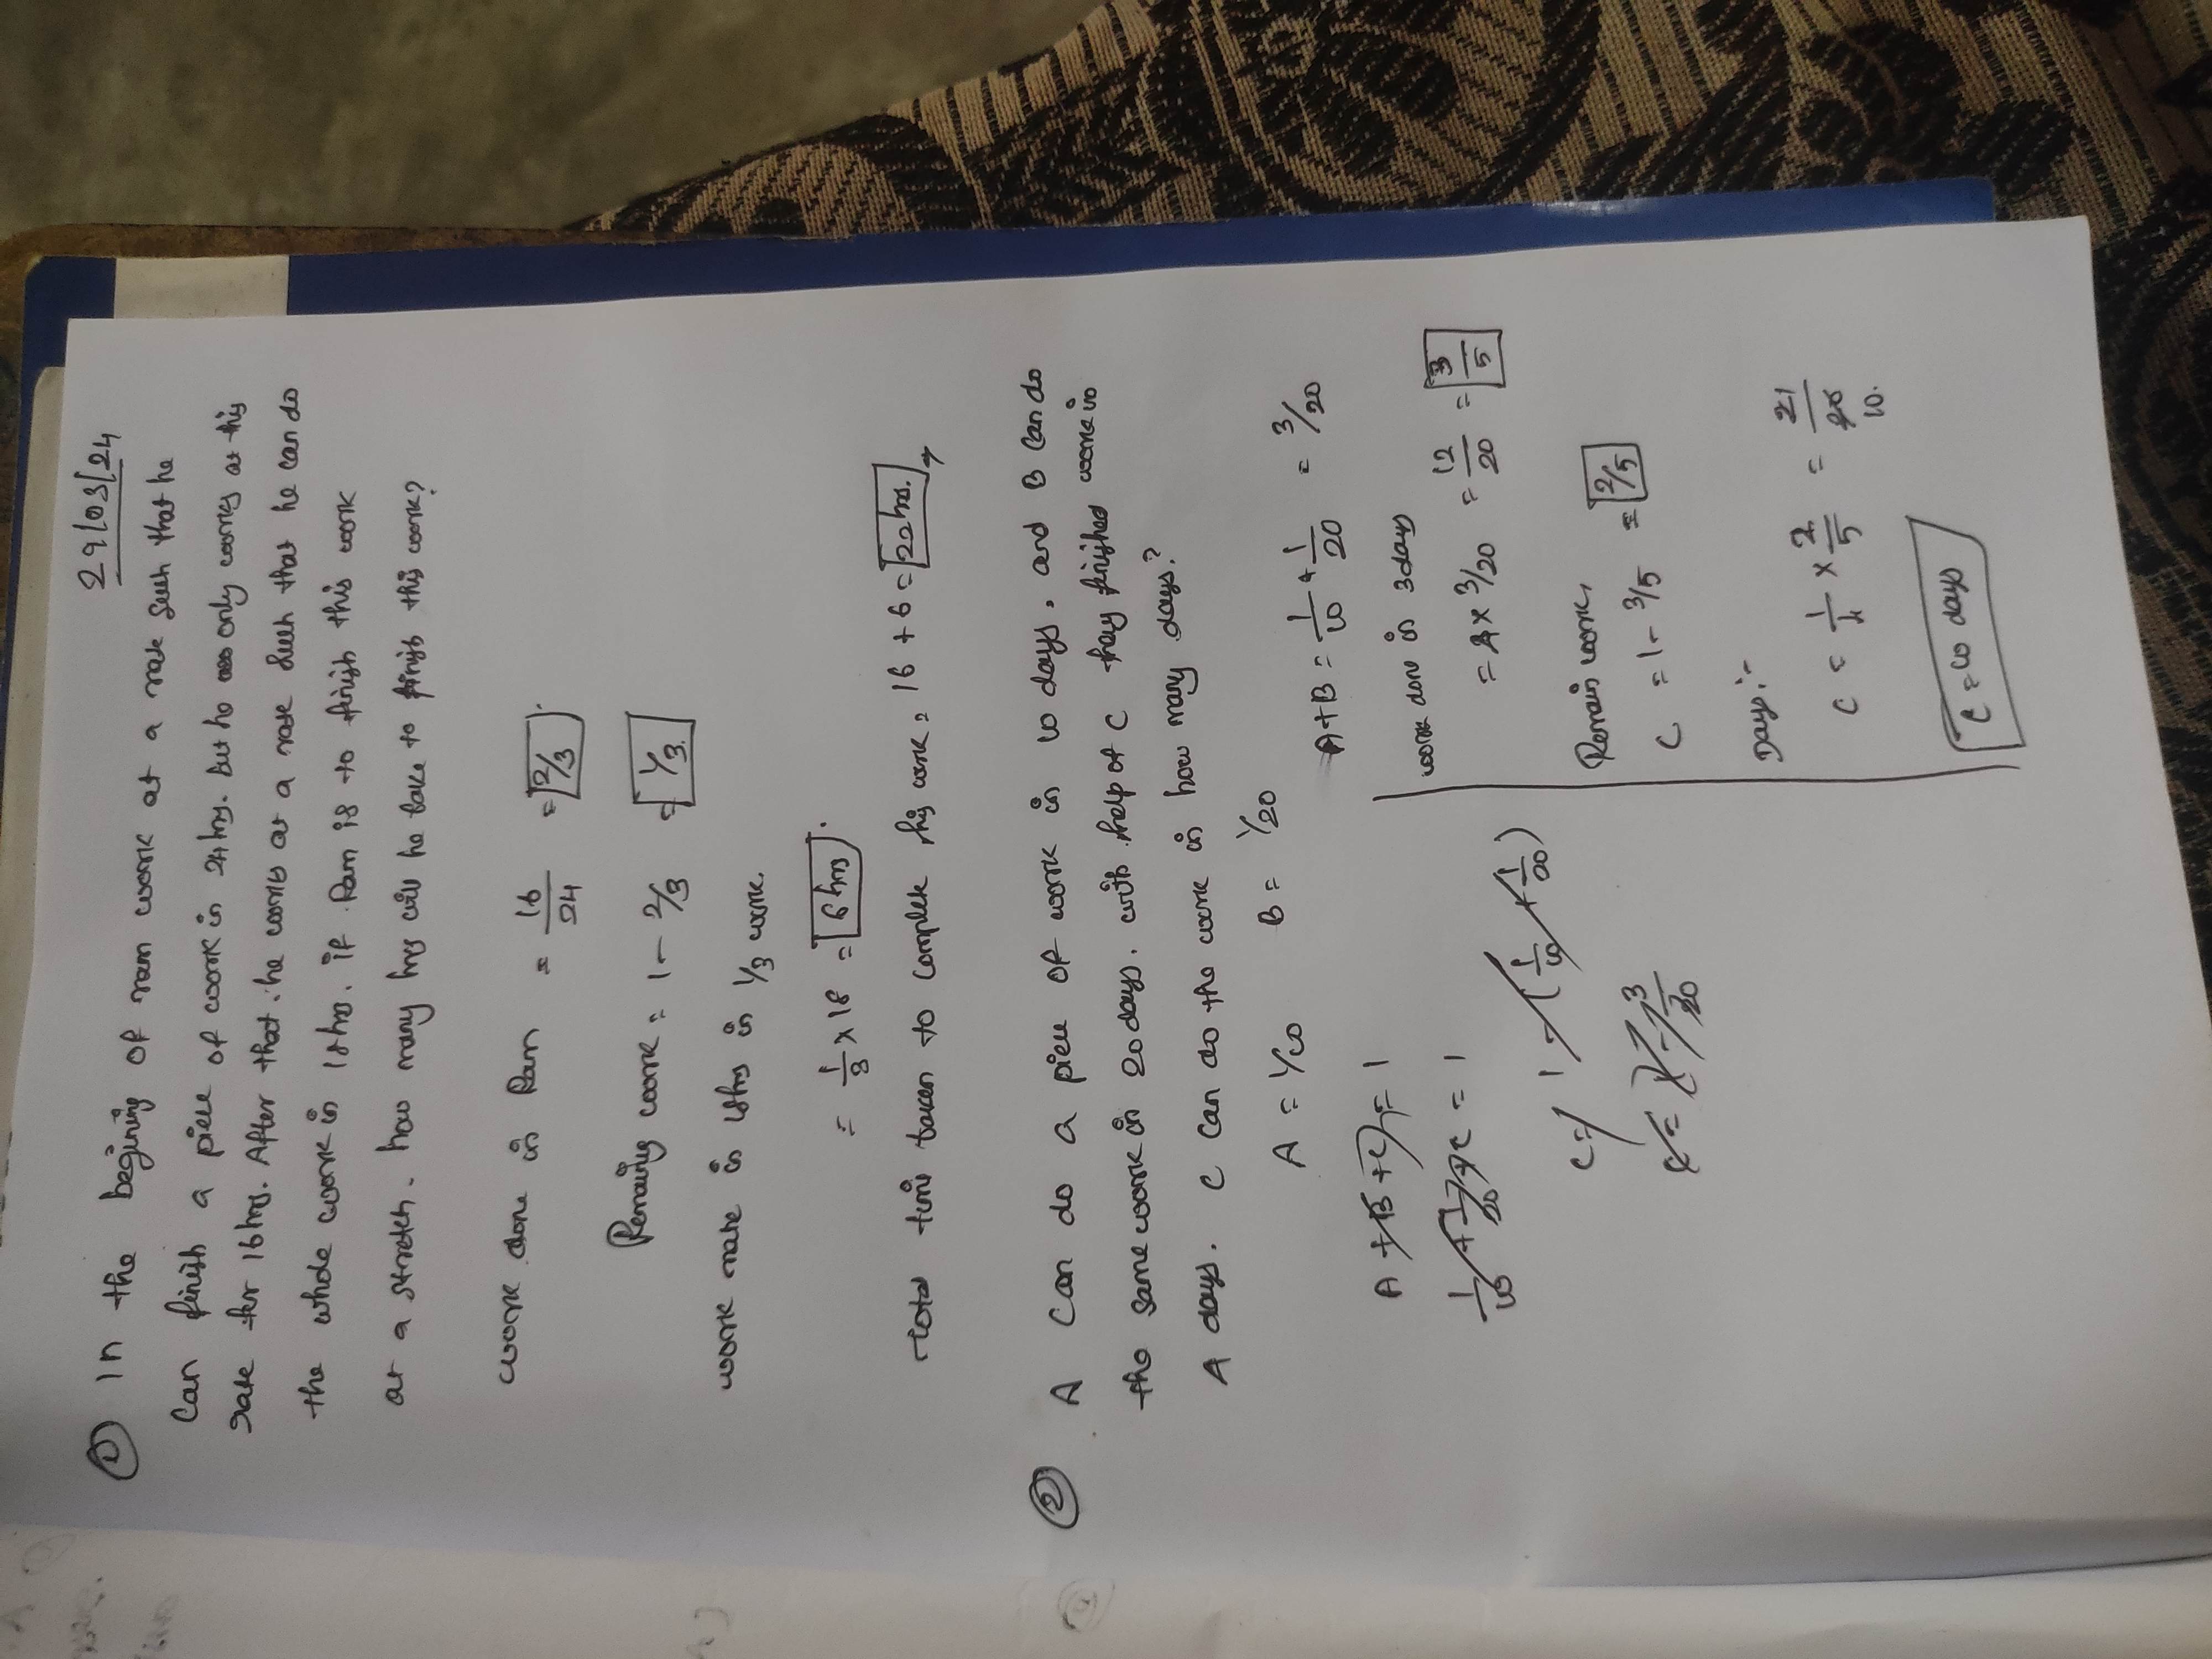 29/03/24
① In the begining of ram work at a rate such that he
can finish a piece of work in 24 hrs. but he only works at this
rate for 16 hrs. After that he works at a rate such that he can do
the whole work in 18 hrs. if Ram is to finish this work
at a stretch. how many hrs will he take to finish this work?
work done in Ram = 16/24 = 2/3
Remaining work = 1 - 2/3 = 1/3
work rate in 18 hrs in 1/3 work.
= 1/3 x 18 = 6 hrs.
Total time taken to complete this work = 16 + 6 = 22 hrs.
② A can do a piece of work in 10 days, and B can do
the same work in 20 days. with help of C they finished work in
4 days. C can do the work in how many days?
A = 1/10 B = 1/20
A+B = 1/10 + 1/20 = 3/20
A + B + C = 1
1/10 + 1/20 + C = 1
C = 1 - (1/10 + 1/20)
C = 1 - 3/20
work done in 3 days
= 4 x 3/20 = 12/20 = 3/5
Remain work,
C = 1 - 3/5 = 2/5
Days:-
C = 1/4 x 2/5 = 21/20
10.
C = 10 days